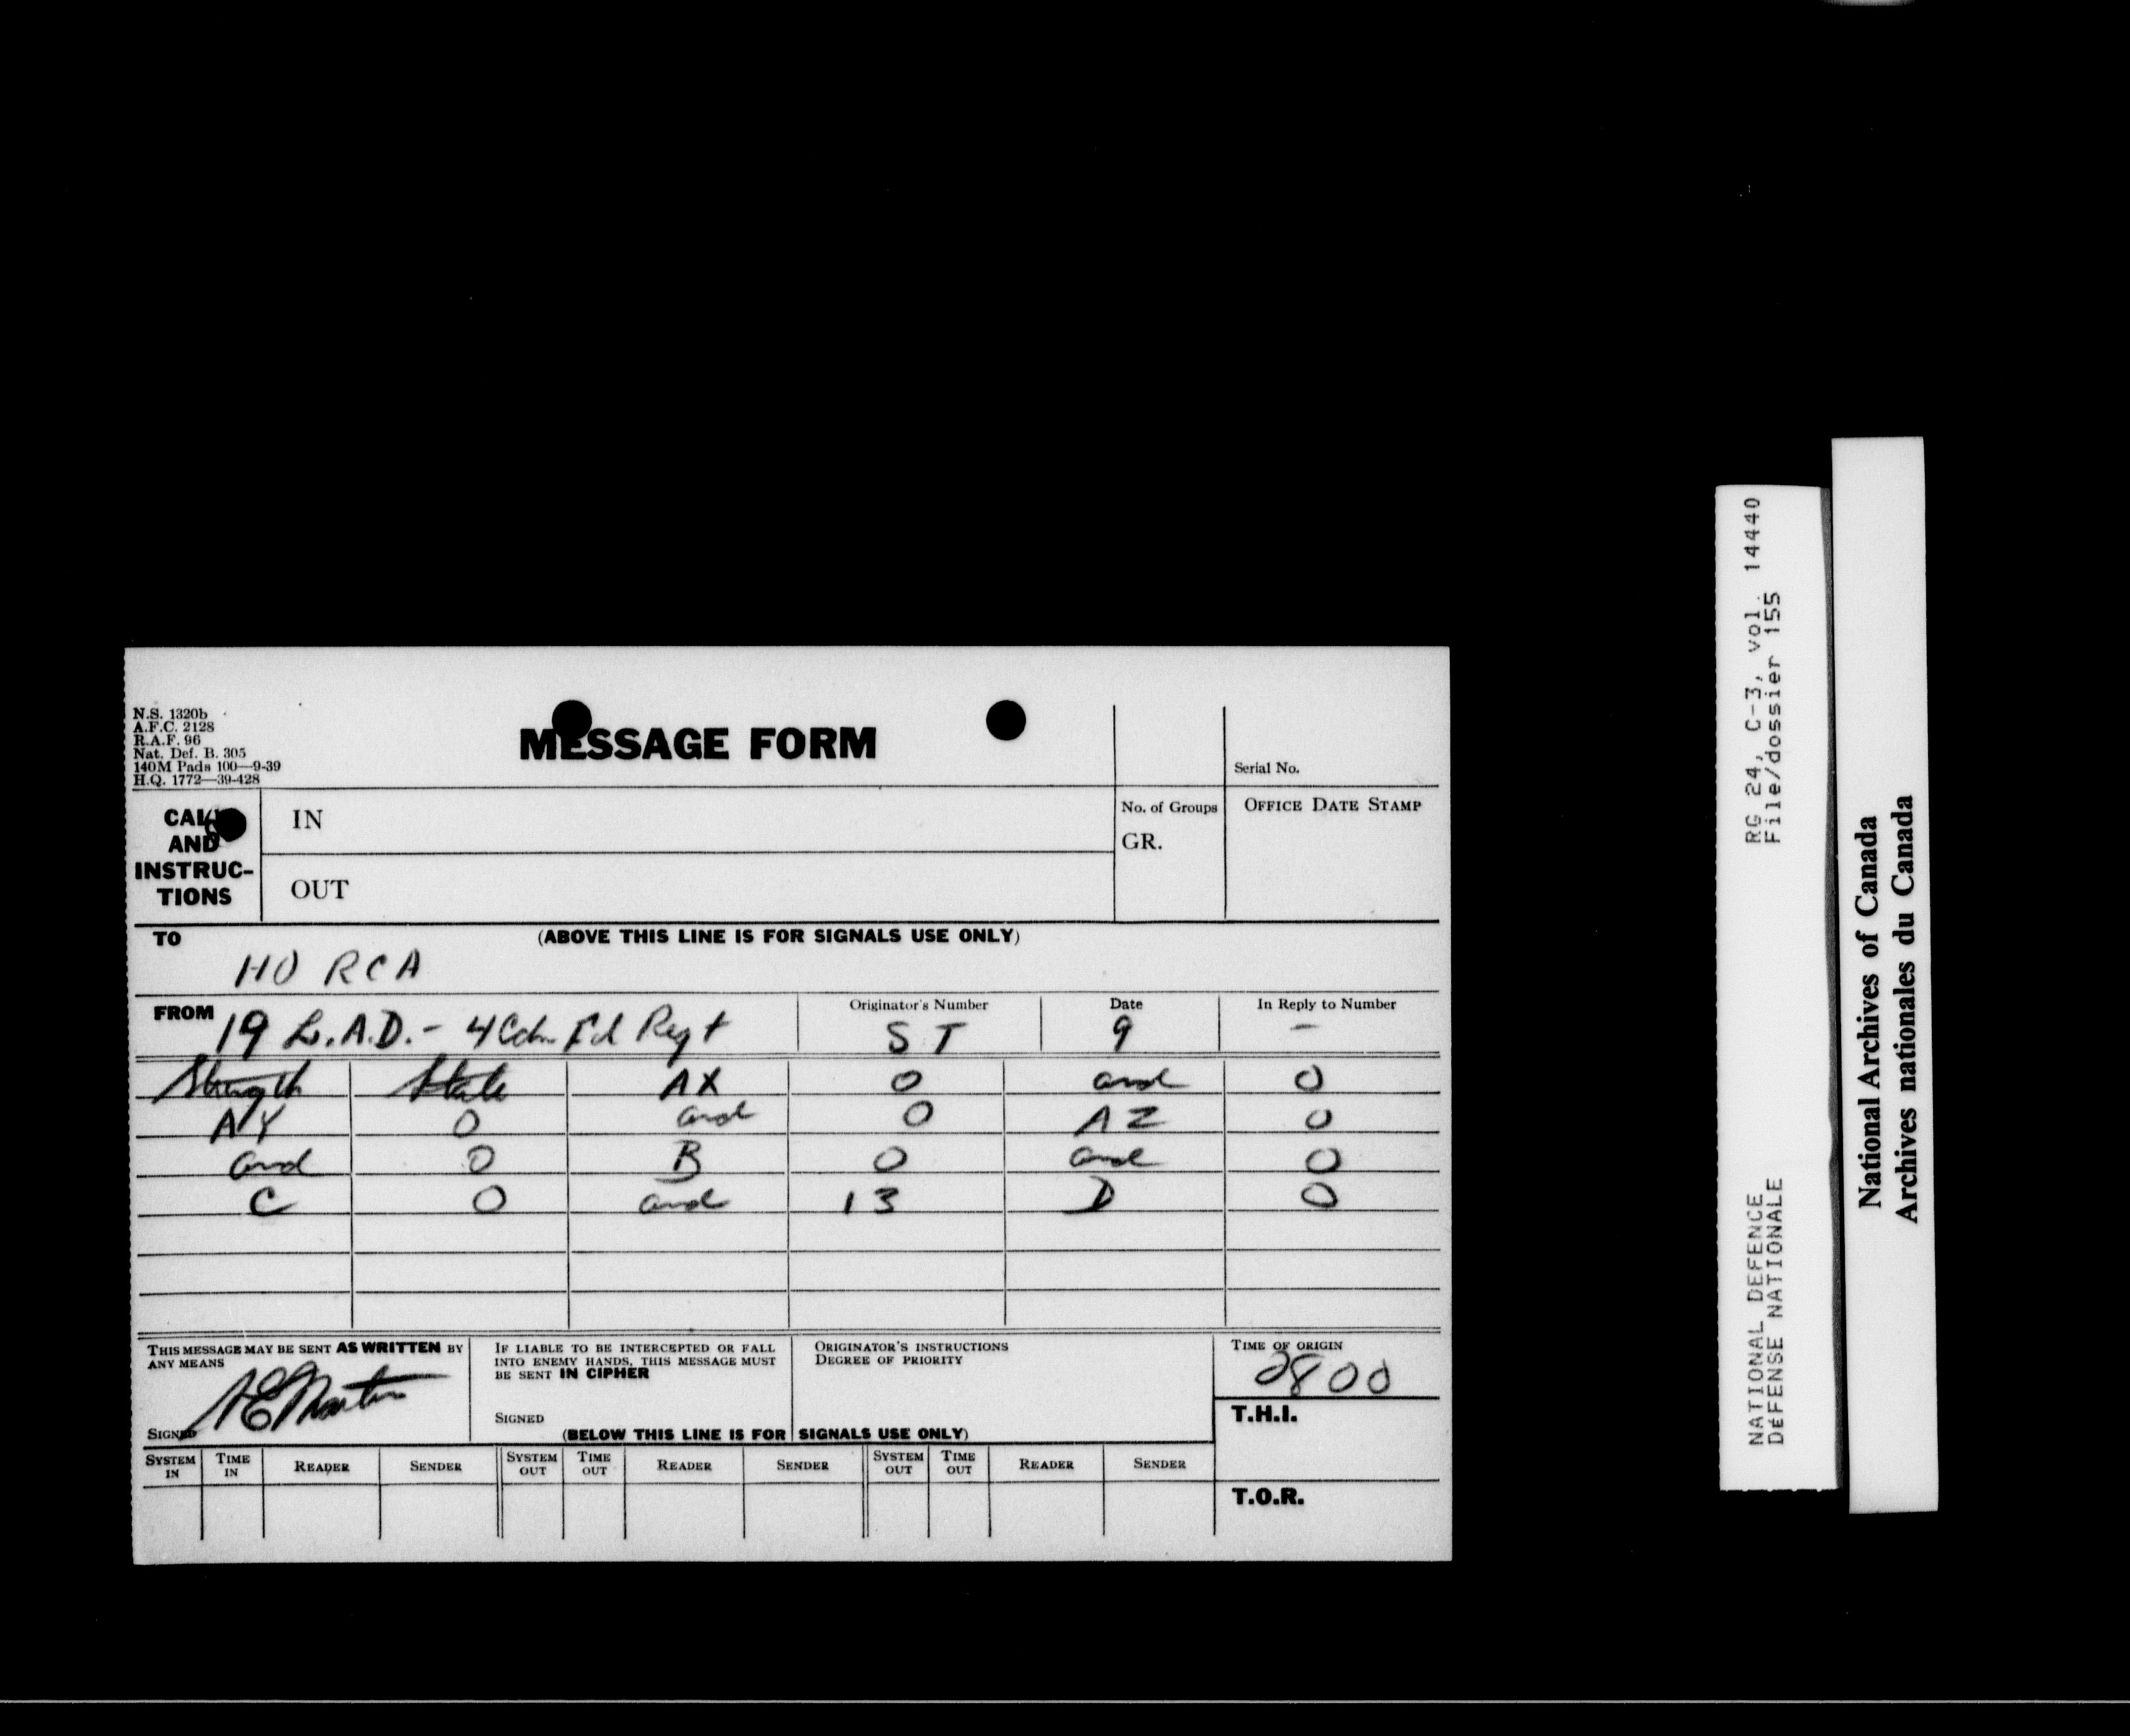 N.S. 1320b
A.F.C. 2128
R.A.F. 96
Nat. Def. B. 305
140M Pads 100—9-39
H.Q. 1772—39-428
MESSAGE FORM
Serial No.
CALL
AND
INSTRUC-
TIONS
IN
OUT
No. of Groups
GR.
OFFICE DATE STAMP
TO
(ABOVE THIS LINE IS FOR SIGNALS USE ONLY)
HQ RCA
FROM 19 L.A.D. - 4 Cdn Fd Regt
Originator's Number
ST
Date
9
In Reply to Number
-
Strength State AX 0 and 0
AY 0 and 0 AZ 0
and 0 B 0 and 0
C 0 and 13 D 0
THIS MESSAGE MAY BE SENT AS WRITTEN BY
ANY MEANS
SIGNED
IF LIABLE TO BE INTERCEPTED OR FALL
INTO ENEMY HANDS, THIS MESSAGE MUST
BE SENT IN CIPHER
SIGNED
ORIGINATOR'S INSTRUCTIONS
DEGREE OF PRIORITY
TIME OF ORIGIN
0800
T.H.I.
(BELOW THIS LINE IS FOR SIGNALS USE ONLY)
SYSTEM IN TIME IN READER SENDER SYSTEM OUT TIME OUT READER SENDER SYSTEM OUT TIME OUT READER SENDER
T.O.R.
RG 24, C-3, vol. 14440
File/dossier 155
NATIONAL DEFENCE
DéFENSE NATIONALE
National Archives of Canada
Archives nationales du Canada